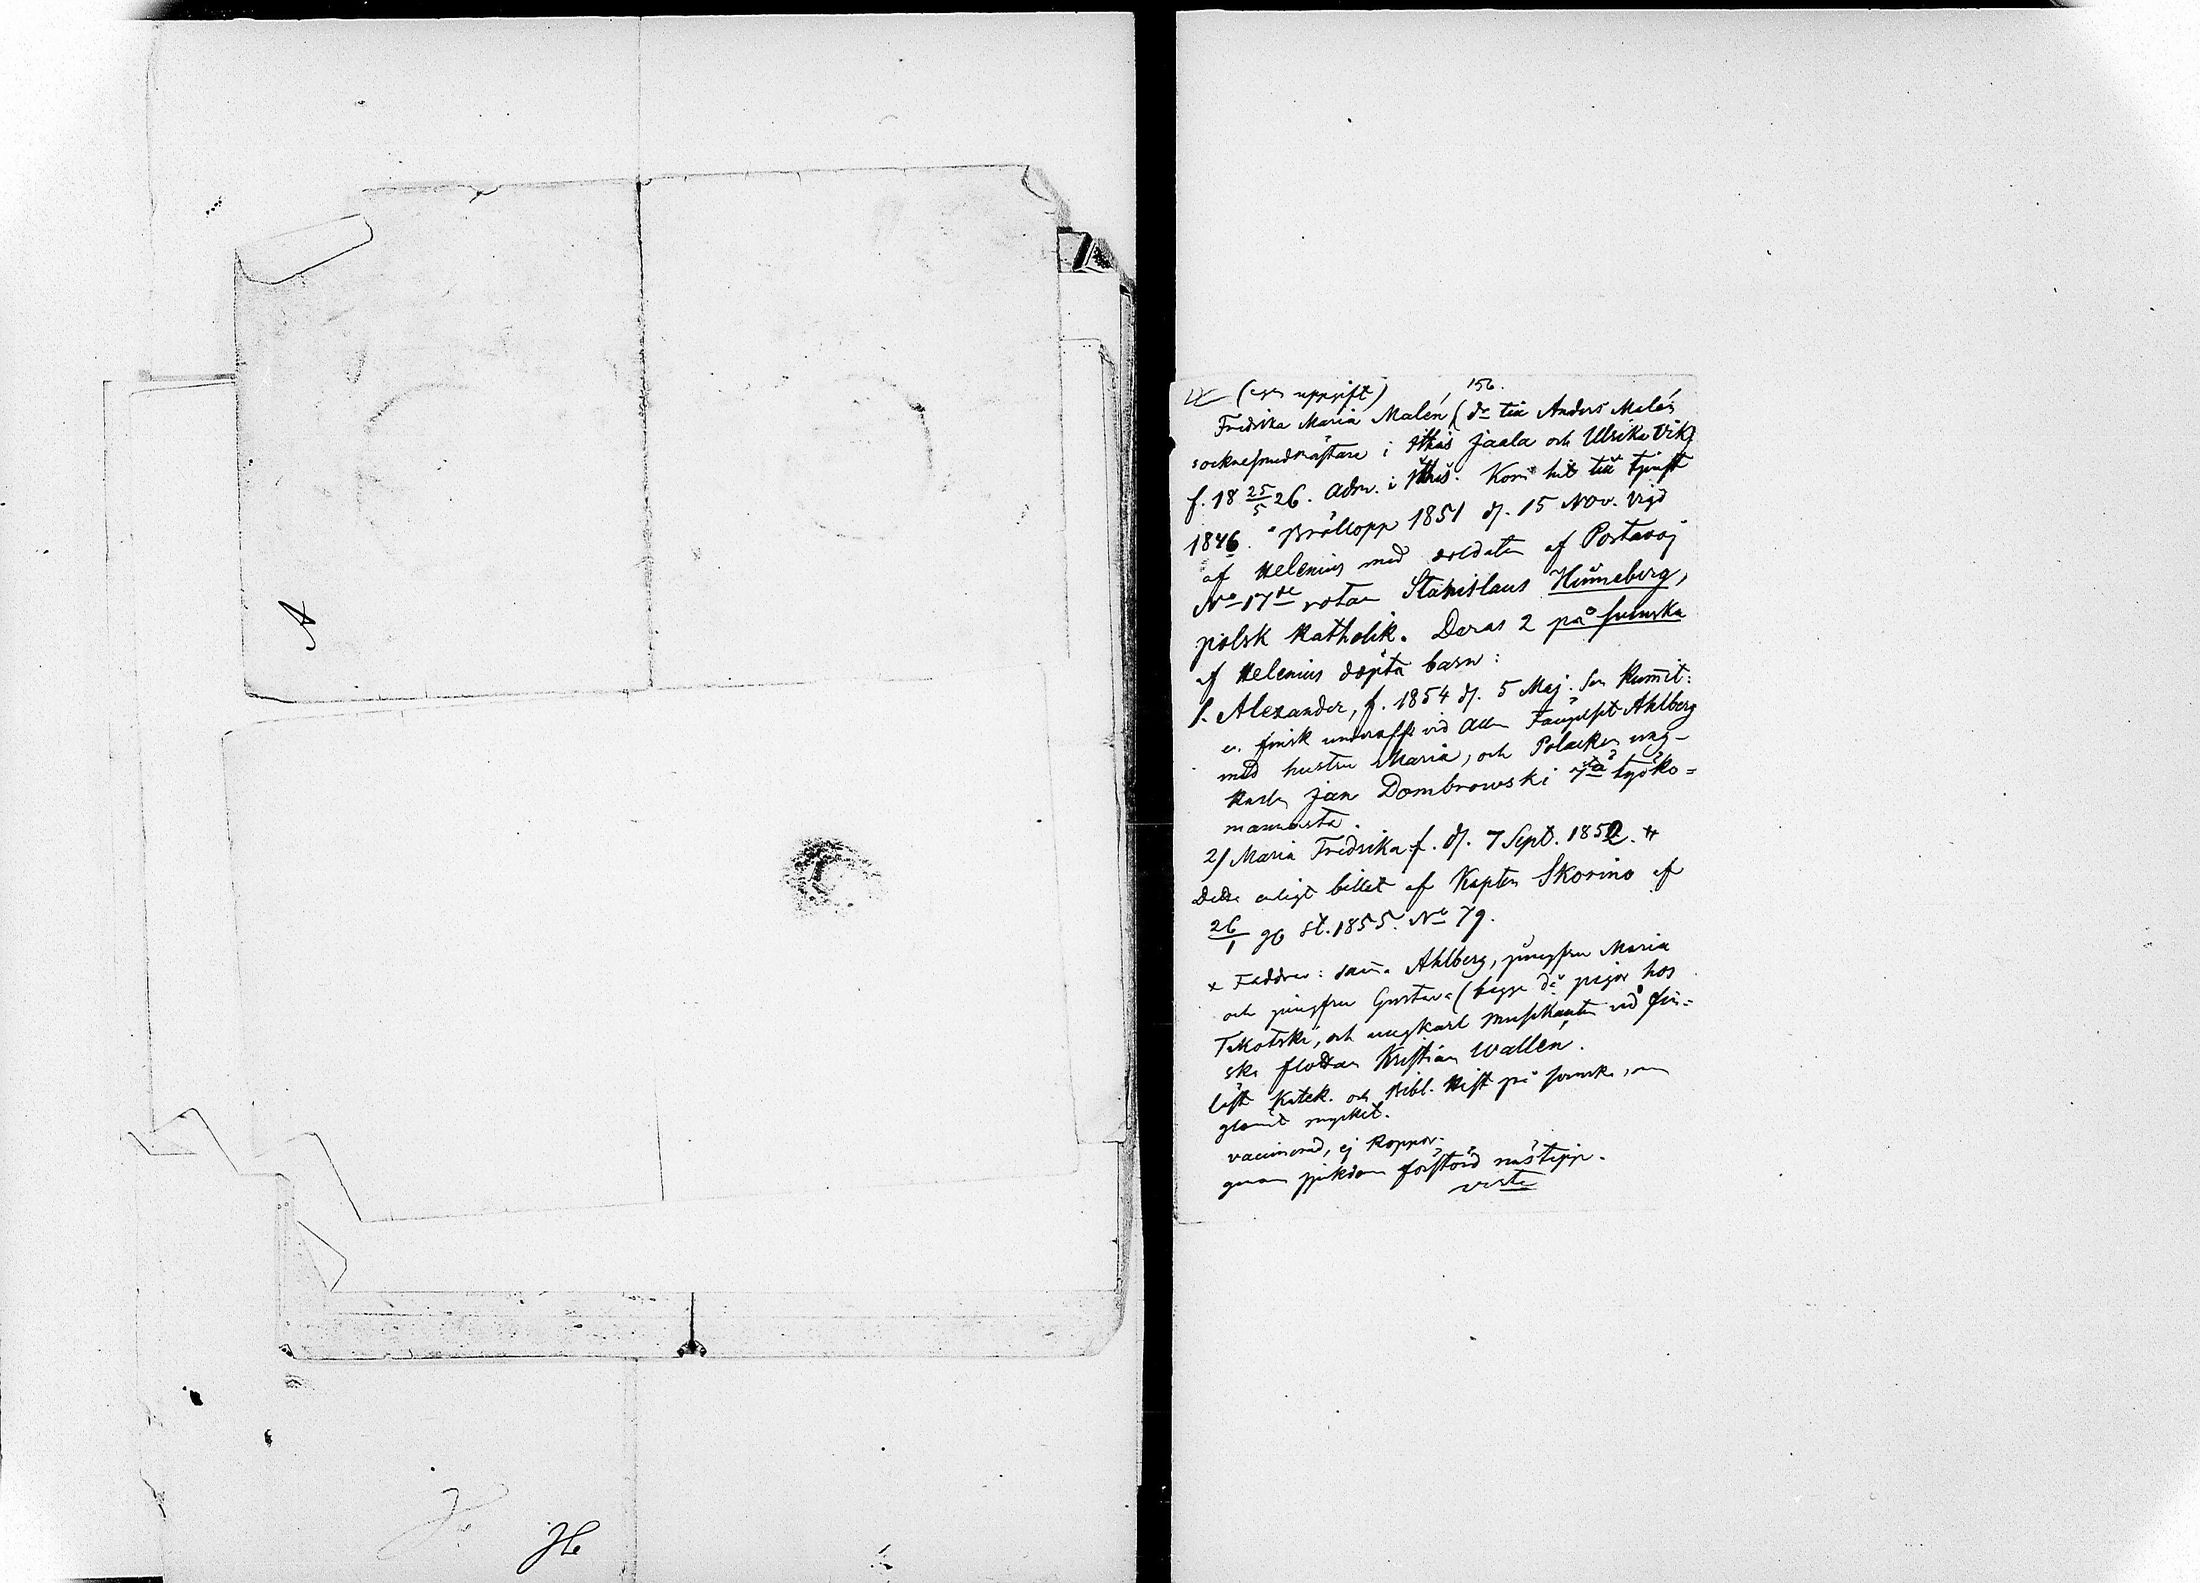 A
He
(egen uppgift) 156.
Fredrika Maria Malén (dr till Anders Malén
socknesmedmästare i Itthis Jaala och Ulrika Vik)
f. 18 25/5 26. Adm. i Itthis. Kom hit till tjenst
1846. Bröllopp 1851 d. 15 Nov. Vigd
af Helenius med soldaten af Postavoj
No 17de rotan Stanislaus Hünneberg,
polsk Katholik. Deras 2 på svenska
af Helenius döpta barn:
1. Alexander, f. 1854 d. 5 Maj.
e. finsk underoff vid Ahlberg
med hustru Maria, och Polacken ung-
karln Jan Dombrowski
2/ Maria Fredrika f. d. 7 Sept. 1852.
Detta enligt billet af Kapten Skorino af
26/1 go st. 1855. No 79.
x Faddrar: samma Ahlberg, jungfru Maria
och jungfru Gustava (begge då pigor hos
och ungkarl musikanten vid fin=
ska flottan Kristian Wallen.
läst Katek. och Bibl. Hist på svenska, men
glömt mycket.
vaccinerad, ej koppor.
genom sjukdom förstörd nästipp.